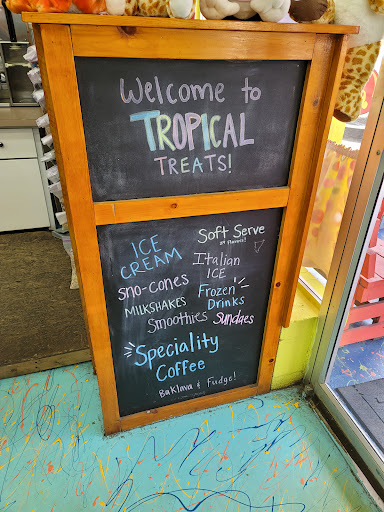 Welcome to
TROPICAL
TREATS!
ICE
CREAM
Soft Serve
Sno-Cones
Italian
ICE
MILKSHAKES
Frozen
Drinks
Smoothies
Sundaes
Speciality
Coffee
Baklava & Fudge!